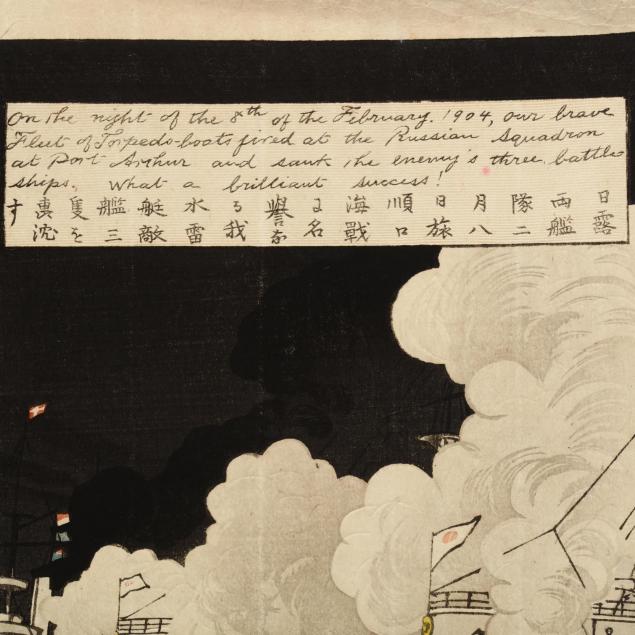 On the night of the 8th of the February. 1904, our brave
Fleet of Torpedo-boats fired at the Russian Squadron
at Port Arthur and sank the enemy's three battle
ships. What a brilliant success!
日露
両艦
隊二
月八
日旅
順口
海戰
に名
譽な
る我
水雷
艇敵
艦三
隻を
沈
す